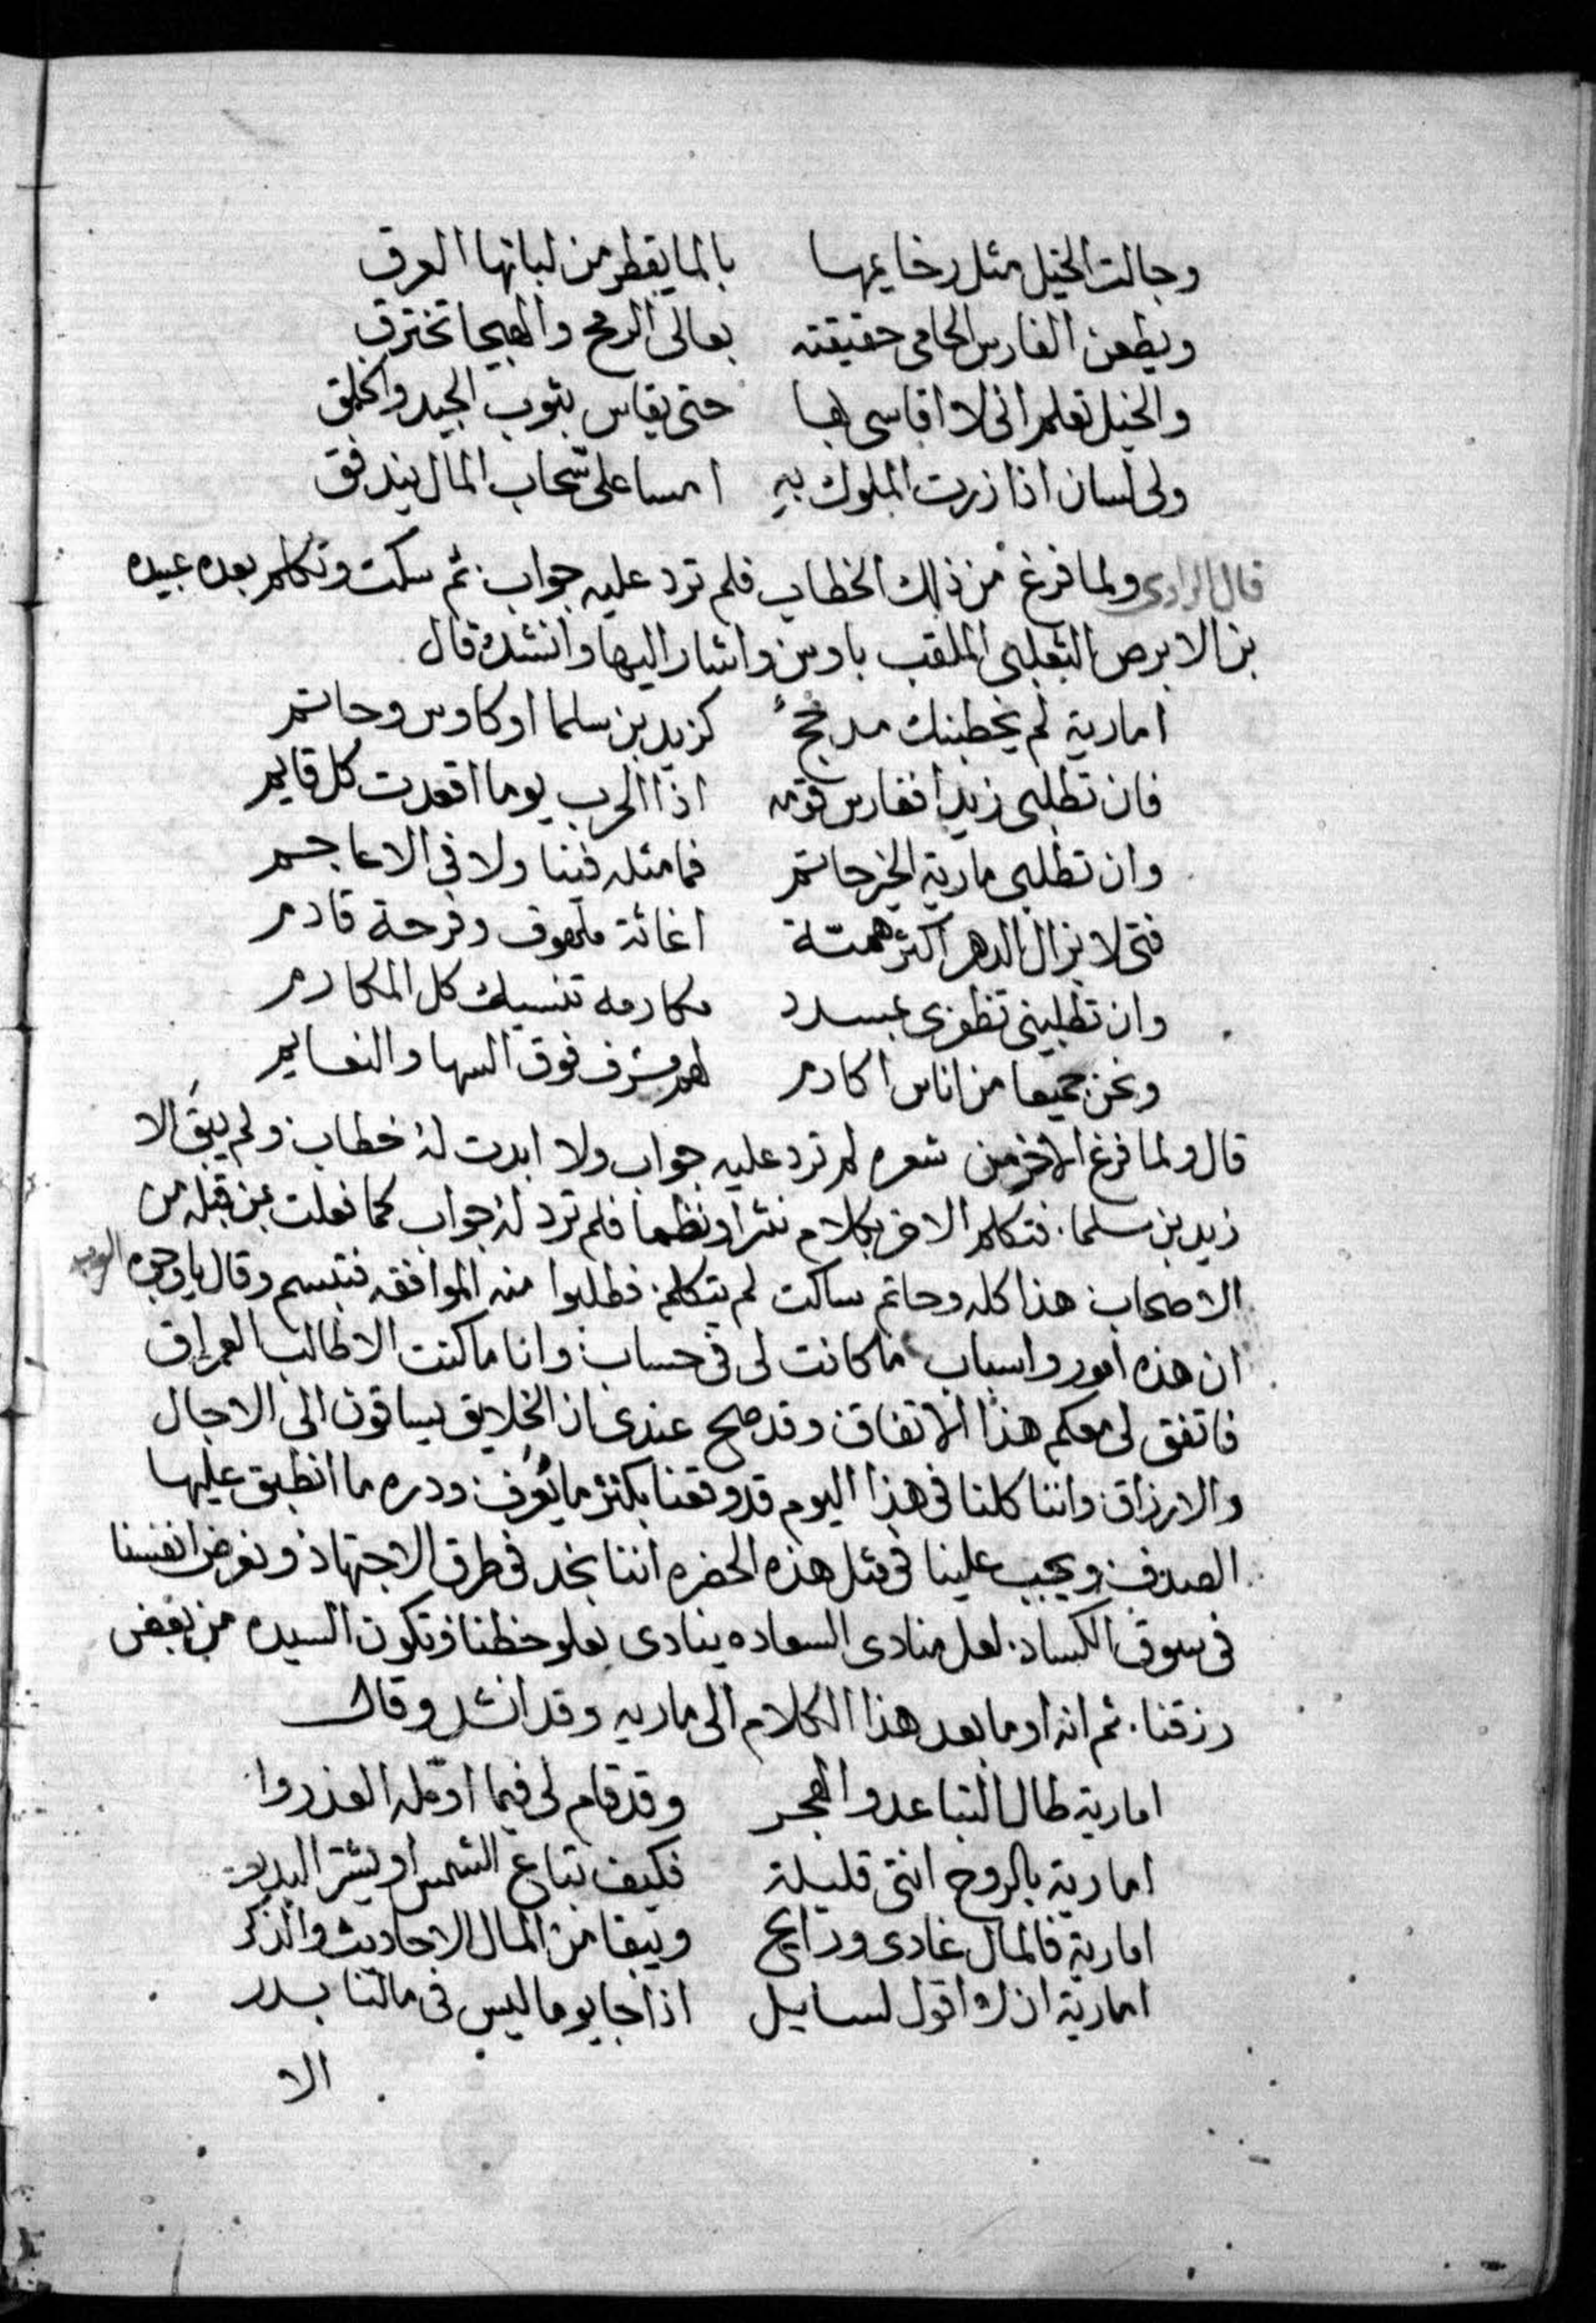 وجالت الخيل مثل رخايمها بالما يقطر من لباتها العرق
ويطعن الفارس الحامى حقيقته بعالى الرمح والهيجا تخترق
والخيل تعلم انى لا اقاسى بها حتى يقاس بثوب الجيد والخلق
ولى لسان اذا زرت الملوك به امسا على سحاب المال يندفق
قال الراوى ولما فرغ من ذلك الخطاب فلم ترد عليه جواب ثم سكت وتكلم بعده عبيده
بن الابرص الثعلبى الملقب باوس واشار اليها وانشد وقال
امارية لم يخطبنك مدجج كزيد بن سلما او كاوس وحاتم
فان تطلبى زيدا ففارس قومه اذا الحرب يوما اقعدت كل قايم
وان تطلبى مارية الخير حاتم فما مثله فينا ولا فى الاعاجم
فتى لا يزال الدهر اكثر همتة اغاثة ملهوف وفرحة قادم
وان تطلبينى تظفرى بمسدد مكارمه تنسيك كل المكارم
ونحن جميعا من اناس اكارم لهم شرف فوق السها والنعايم
قال ولما فرغ الاخر من شعره لم ترد عليه جواب ولا ابدت له خطاب ولم يبق الا
زيد بن سلما. فتكلم الاخر بكلام نثرا ونظما فلم ترد له جواب كما فعلت بمن قبله من
الاصحاب هذا كله وحاتم ساكت لم يتكلم فطلبوا منه الموافقه فتبسم وقال يا وجوه العرب
ان هذه امور واسباب ما كانت لى فى حساب وانا ما كنت الا طالب العراق
فاتفق لى معكم هذا الاتفاق وقد صح عندى ان الخلايق يساقون الى الاجال
والارزاق واننا كلنا فى هذا اليوم قد وقعنا بكنز ما يعرف ودره ما انطبق عليها
الصدف ويجب علينا فى مثل هذه الحضره اننا نجد فى طرق الاجتهاد ونعرض انفسنا
فى سوق الكساد. لعل منادى السعاده ينادى بعلو حظنا فتكون السيده من بعض
رزقنا. ثم انه اوما بعد هذا الكلام الى ماريه وقد انشد وقال
امارية طال التباعد والهجر وقد قام لى فيما اؤمله العذروا
امارية بالروح انتى قليلة فكيف تباع الشمس او يشترا البدر
امارية فالمال غادى ورايح ويبقا من المال الاحاديث والذكر
امارية ان لا اقول لسايل اذا جا يوما ليس فى مالنا بدر
الا